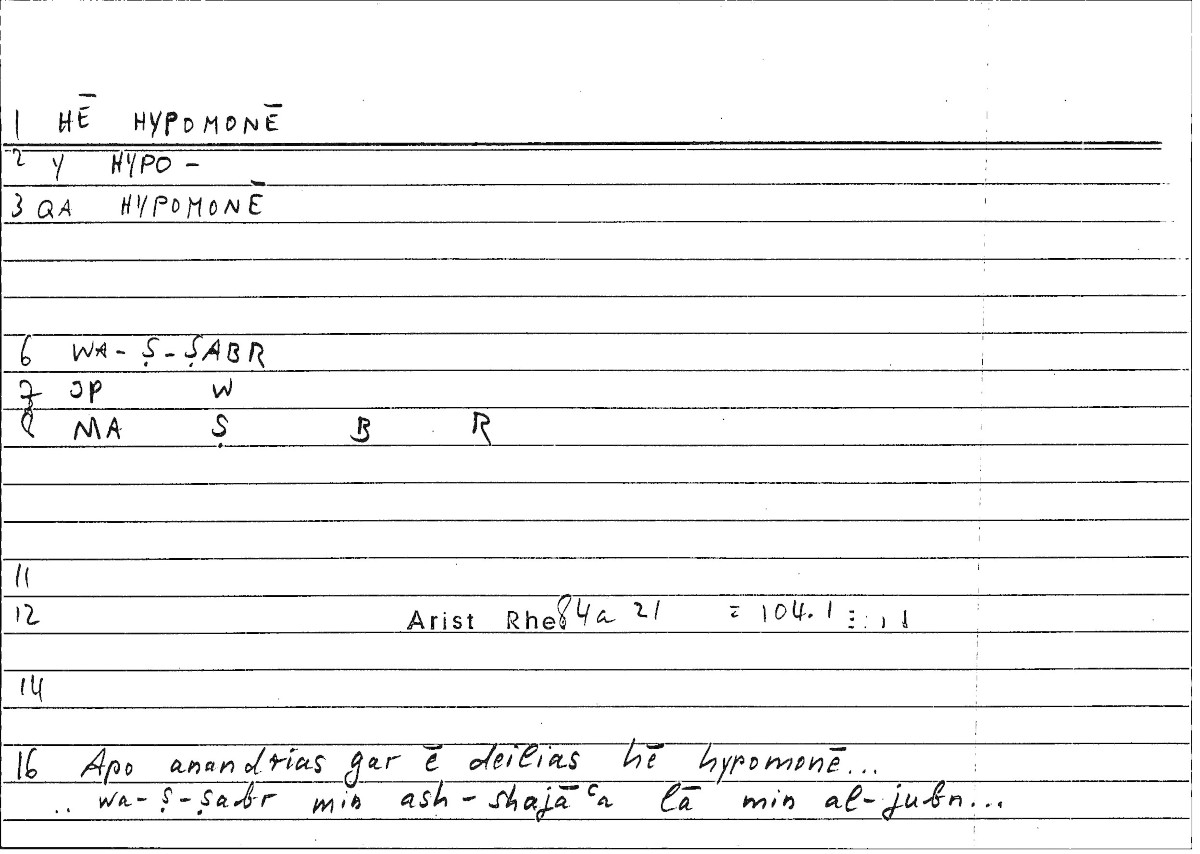 1 HĒ HYPOMONĒ
2 Y HYPO -
3 QA HYPOMONĒ
6 WA- Ṣ-ṢABR
7 JP W
8 MA Ṣ B R
11
12 Arist Rhe 84a 21 = 104.1
14
16 Apo anandrias gar ē deilias hē hypomonē...
.. wa-ṣ-ṣabr min ash-shajāʿa lā min al-jubn...